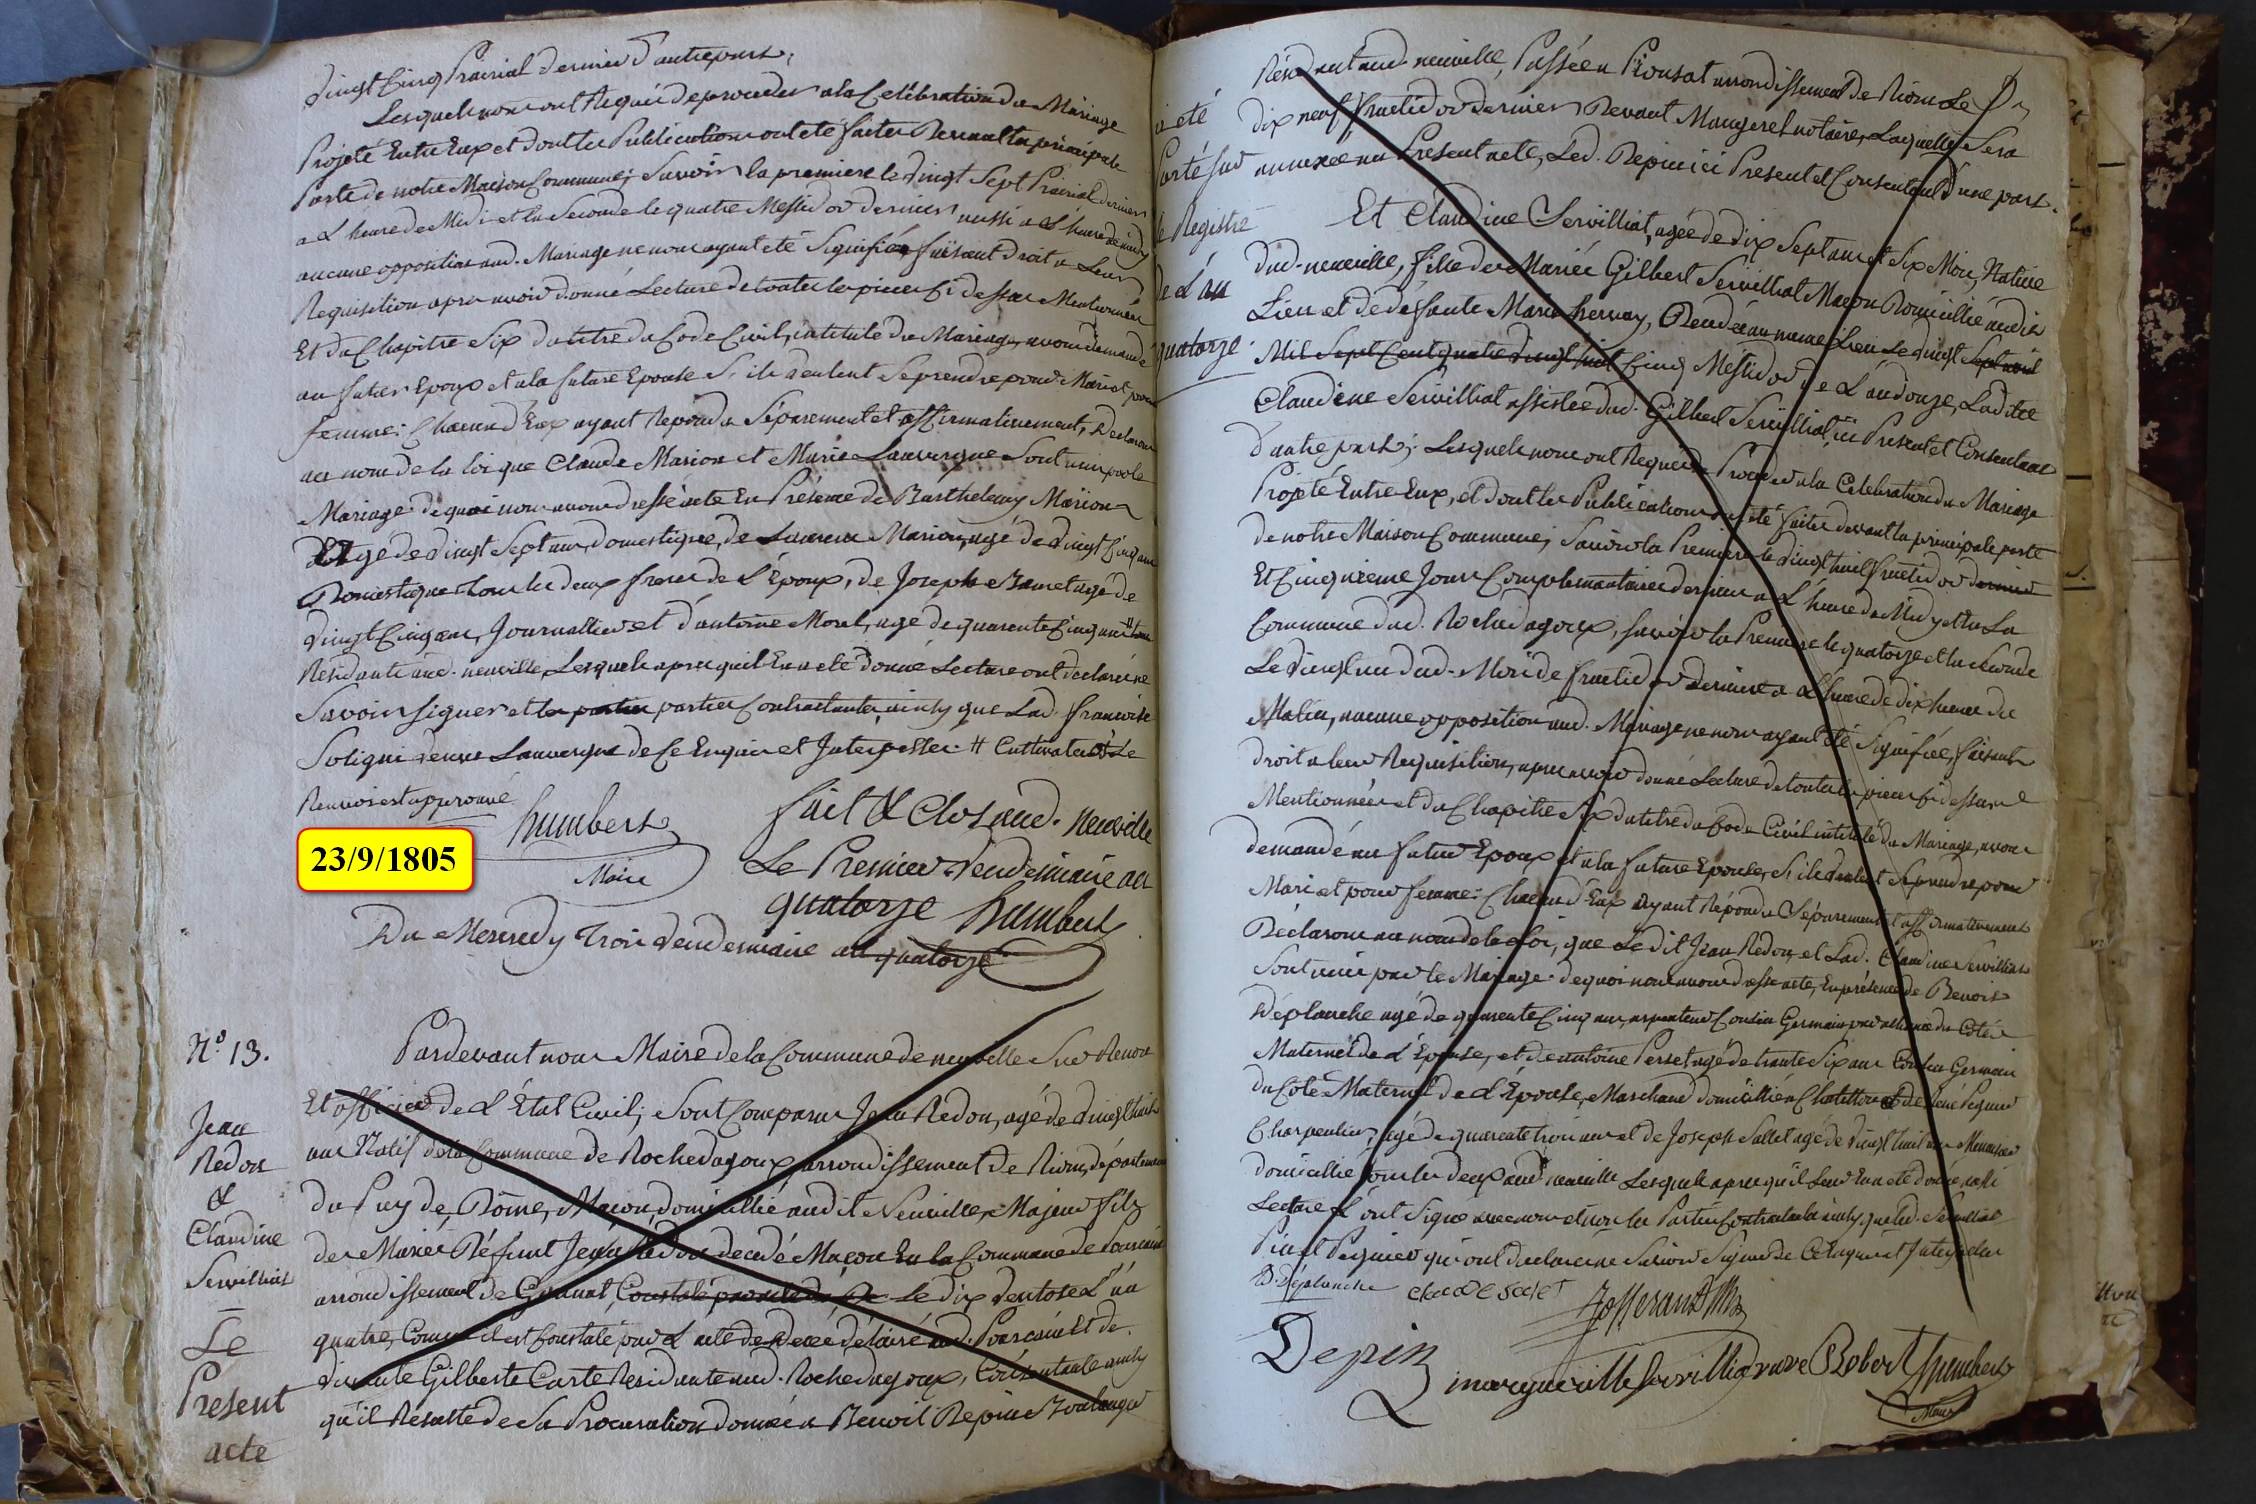 vingt Cinq Prairial dernier d'autrepart;
Lesquels nous ont Requis de proceder a la Celébration du Mariage
Projeté Entre Eux et dont les Publications ont eté faites devant la principale
Porte de notre Maison Commune; Savoir la premiere le vingt Sept Prairial dernier
a L'heure de Midi et la Seconde le quatre Messidor dernier aussi a L'heure de midy
aucune opposition aud. Mariage ne nous ayant eté Signifiée faisant droit a Leur
Requisition apres avoir donné Lecture de toutes les pieces Ci dessus Mentionnées
Et du Chapitre Six du titre du Code Civil, intitulé du Mariage, avons demandé
au futur Epoux et a la future Epouse S'ils veulent Se prendre pour Mari et pour
femme: Chacun d'Eux ayant Repondu Séparement et affirmativement, Declarons
au nom de la loi que Claude Marion et Marie Lauvergne Sont unis par le
Mariage: de quoi nous avons dressé acte En Présence de Barthelemy Marion
Agé de vingt Sept ans, domestique, de Laurent Marion, agé de vingt Cinq ans
Domestique tous les deux freres de L'Epoux, de Joseph agé de
vingt Cinq ans, Journallier et d'antoine Morel, agé de quarente Cinq ans # tous
Résidants aud. neuville, Lesquels apres quil En a eté donné Lecture ont declaré ne
Savoir Signer et les parties parties Contractantes, ainsy que Lad. francoise
Soligni veuve Lauvergne de Ce Enquis et Interpellés: # Cultivateur Le
Renvoi est approuvé
humbert
Maire
fait & Clos aud. Neuville
Le Premier vendemiaire an
quatorze humbert
23/9/1805
Du Mercredy Trois vendemiaire an quatorze
N.º 13.
Jean
Redon
&
Claudine
Servilliat
Le
Present
acte
Pardevant nous Maire de la Commune de neuville Sus Renon
Et officier de L'Etat Civil; Sont Comparus Jean Redon, agé de vingt huit
ans Natif de la Commune de Rochedagoux arrondissement de Riom, départemens
du Puy de Dôme, Maçon, domicillié audit Neuville, Majeur fils
des Mariés Défunt Jean Redon decedé Maçon En la Commune de Pourcain
arrondissement de Gannat, Constaté Le dix ventose L'an
quatre, Comme il est Constaté par L'acte de Deces délivré aud. Pourcain Et de
vivante Gilberte Carte Residante aud. Rochedagoux, Consentante ainsy
qu'il Résulte de Sa Procuration donnée a Benoit Depin Boulanger
a eté
Porté sur
le Registre
de L'an
quatorze.
Résidant aud. neuville, Passée a Pionsat arrondissement de Riom Le
dix neuf fructidor dernier Devant Maugeret notaire, Laquelle Sera
annexée au Present acte, Led. Depin ici Present et Consentant d'une part.
Et Claudine Servilliat, agée de dix Sept ans et Six Mois, Native
dud. neuville, fille des Mariés Gilbert Servilliat Maçon Domicillié audit
Lieu et de deffunte Marie hervay, Décédée au meme Lieu Le vingt Sept avril
Mil Sept Cent quatre vingt huit Cinq Messidor de L'an douze, Ladite
Claudine Servilliat assistée dud. Gilbert Servilliat, ici Present et Consentant
d'autre part; Lesquels nous ont Requis de Proceder a la Celebration du Mariage
Projeté Entre Eux, et dont les Publications ont eté faites devant la principale porte
de notre Maison Commune; Savoir la Premiere le vingt huit fructidor dernier
Et Cinquieme Jour Complementaire dernier a L'heure de Midy et a La
Commune dud. Rochedagoux, Savoir la Premiere le quatorze et la Seconde
Le vingt un dud. Mois de fructidor dernier a L'heure de dix heures du
Matin, aucune opposition aud. Mariage ne nous ayant eté Signifiée, faisant
droit a leur Requisition, apres avoir donné Lecture de toutes les pieces Ci dessus
Mentionnées et du Chapitre Six du titre du Code Civil intitulé du Mariage, avons
demandé au futur Epoux et a la future Epouse, S'ils veulent Se prendre pour
Mari et pour femme: Chacun d'Eux ayant Répondu Séparement et affirmativement
Déclarons au nom de la Loi, que Le dit Jean Redon, et Lad. Claudine Servilliat
Sont unis par le Mariage: de quoi nous avons dressé acte, En présence de Benoit
Déplanche agé de quarente Cinq ans, arpenteur Cousin Germain par alliance du Coté
Maternel de L'épouse, et de antoine Perset agé de trante Six ans Cousin Germain
du Coté Maternel de L'Epouse, Marchand domicillié a Chatillon et de Réné Peguier
Charpentier, agé de quarente trois ans et de Joseph Sallet agé de vingt huit ans Menuisier
domicillié tous les deux aud. neuville Lesquels apres qu'il Leur En a eté donné
Lecture L'ont Signé avec nous et non les Parties Contractantes ainsy que led. Servilliat
Pere et Peguier qui ont declaré ne Savoir Signer de Ce Enquis et Interpellés
B Déplanche
Josserand
Depin margueritte Servilliat veuve Robert humbert
Maire